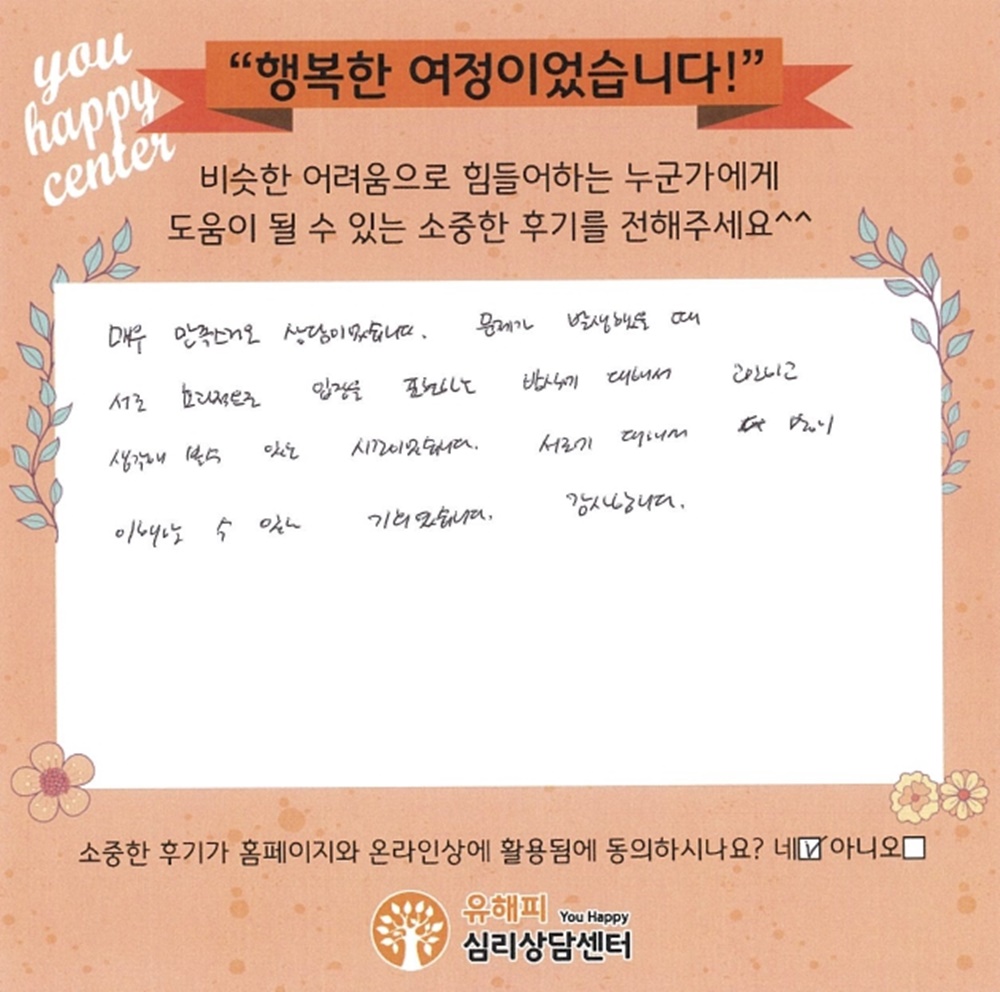 you
happy
center
“행복한 여정이었습니다!”
비슷한 어려움으로 힘들어하는 누군가에게
도움이 될 수 있는 소중한 후기를 전해주세요^^
매우 만족스러운 상담이었습니다. 문제가 발생했을 때
서로 효과적으로 입장을 표현하는 방식에 대해서 고민하고
생각해 볼수 있는 시간이었습니다. 서로에 대해서 더 많이
이해하는 수 있는 기회였습니다. 감사합니다.
소중한 후기가 홈페이지와 온라인상에 활용됨에 동의하시나요? 네☑ 아니오☐
유해피 You Happy
심리상담센터